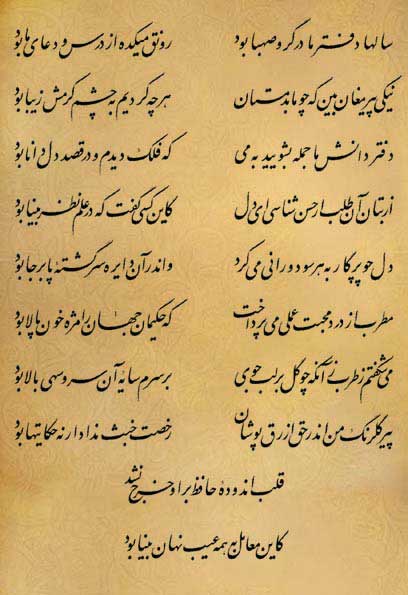 سالها دفتر ما در گرو صهبا بود رونق میکده از درس و دعای ما بود
نیکی پیر مغان بین که چو ما بدمستان هر چه کردیم به چشم کرمش زیبا بود
دفتر دانش ما جمله بشویید به می که فلک دیدم و در قصد دل دانا بود
از بتان آن طلب ار حسن شناسی ای دل کاین کسی گفت که در علم نظر بینا بود
دل چو پرگار به هر سو دورانی می‌کرد و اندر آن دایره سرگشته پابرجا بود
مطرب از درد محبت عملی می‌پرداخت که حکیمان جهان را مژه خون پالا بود
می‌شکفتم ز طرب زآنکه چو گل بر لب جوی بر سرم سایه آن سرو سهی بالا بود
پیر گلرنگ من اندر حق ازرق پوشان رخصت خبث نداد ار نه حکایتها بود
قلب اندوده حافظ بر او خرج نشد
کاین معامل به همه عیب نهان بینا بود